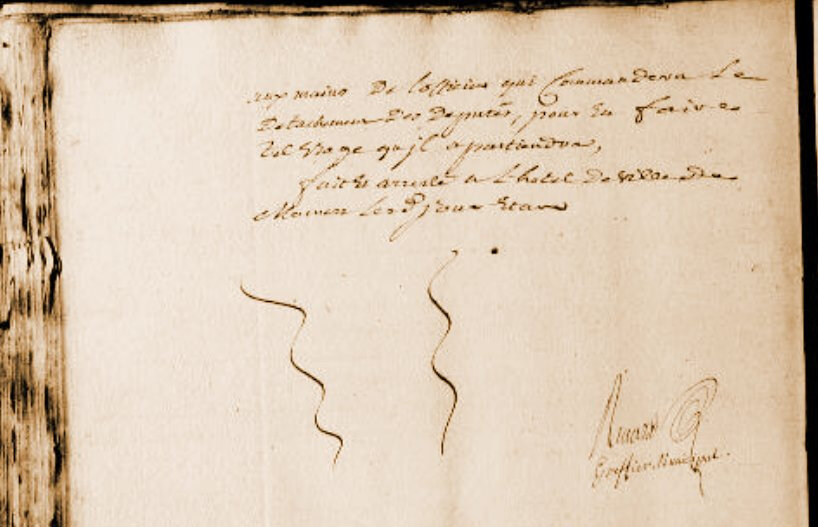 aux mains De lofficier qui Commandera Le
Detachement des Deputés, pour En faire
tel Usage qu'jl apartiendra,
fait Et arresté a L'hotel De ville de
Les d. jour Et an
Greffier Municipal.